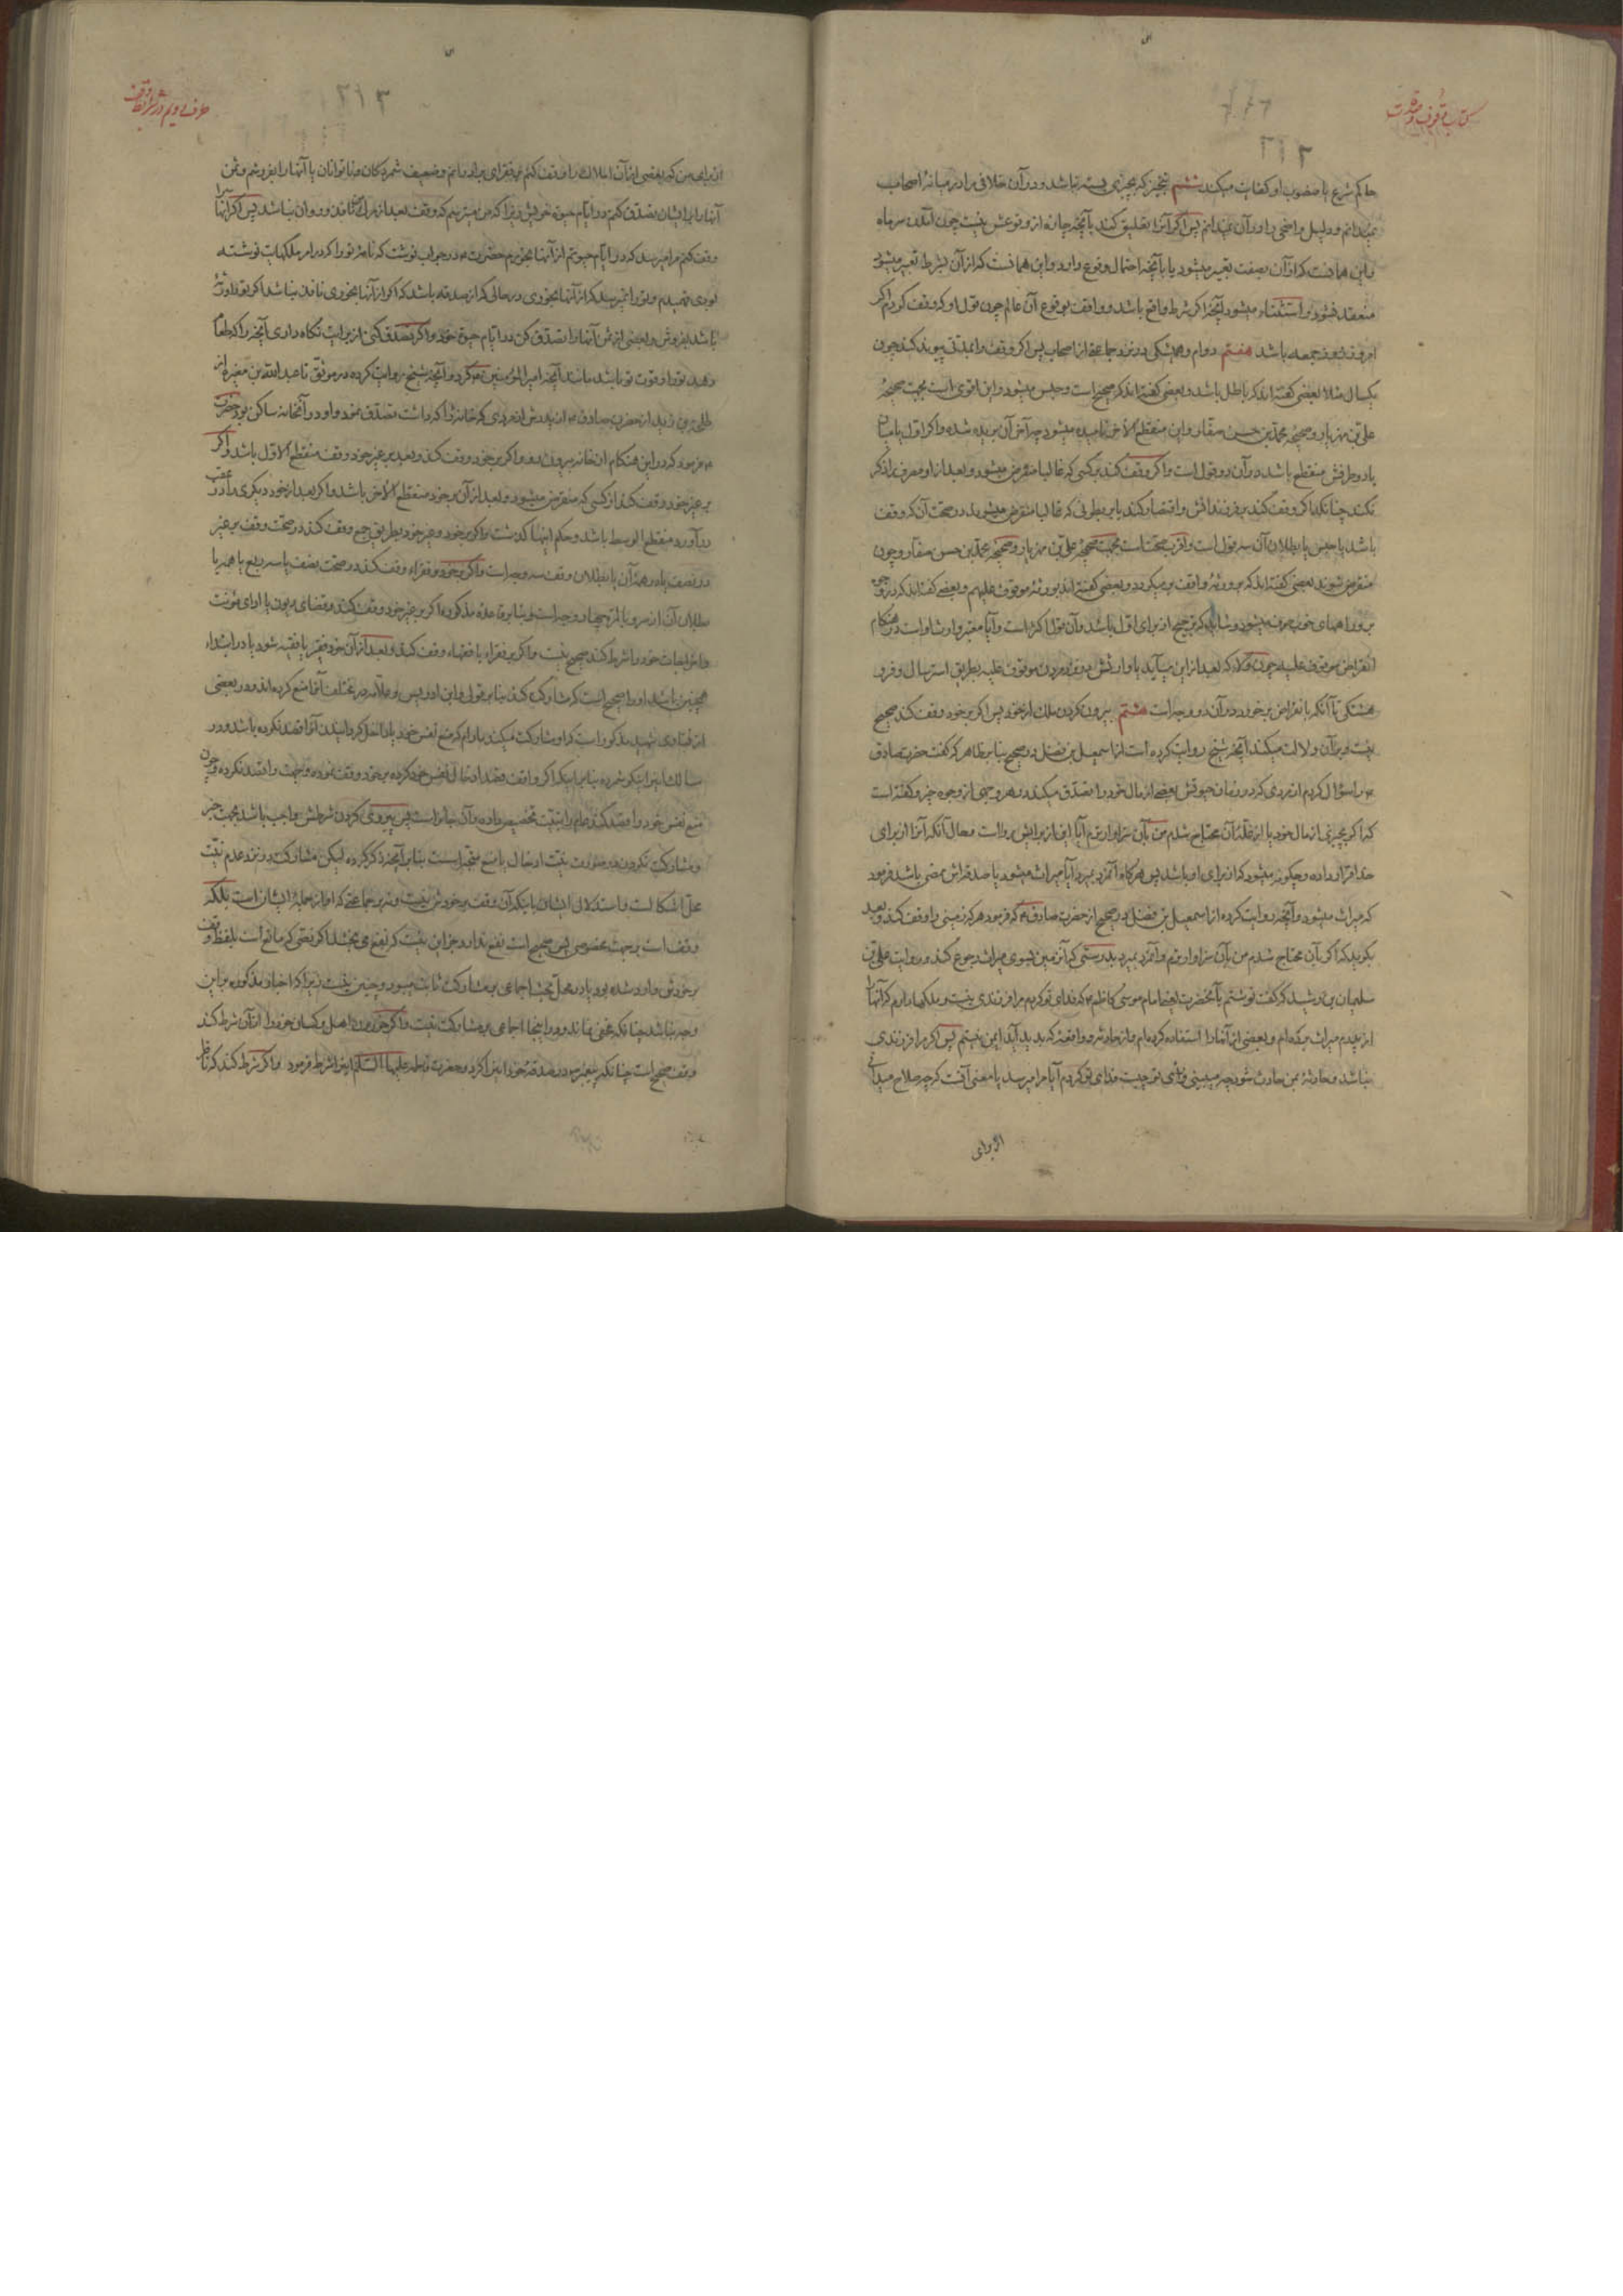 کتاب وقوف و صدقات
٢١٢
حاکم شرع یا منصوب او کفایت میکند ششم تنجیز که بچیزی بسته نباشد و در آن خلافی در میانهٔ اصحاب
نمیدانم و دلیل واضحی را در آن نمیدانم پس اگر آنرا تعلیق کند بآنچه چاره از وقوعش نیست چون آمدن سر ماه
و این همانست که از آن بصفت تعبیر میشود یا بآنچه احتمال وقوع دارد و این همانست که از آن بشرط تعبیر میشود
منعقد نشود و استثناء میشود آنچه اگر شرط واقع باشد و واقف بوقوع آن عالم چون قول او که وقف کردم اگر
امروز روز جمعه باشد هفتم دوام و همیشگی در نزد جماعة از اصحاب پس اگر وقف را بمدتی پیوند کند چون
یکسال مثلا بعضی گفته‌اند که باطل باشد و بعضی گفته‌اند که صحیح است و حبس میشود و این اقوی است بجهت صحیحهٔ
علی بن مهزیار و صحیحهٔ محمد بن حسن صفار و این منقطع الآخر نامیده میشود چه آخر آن بریده شده و اگر اول یا میان
یا دو طرفش منقطع باشد در آن دو قول است و اگر وقف کند بر کسی که غالبا منقرض میشود و بعد از او مصرفی را ذکر
نکند چنانکه اگر وقف کند بر فرزندانش و اقتصار کند یا بر بطونی که غالبا منقرض میشوند در صحت آن که وقف
باشد یا حبس یا بطلان آن سه قول است و اقرب صحت است بجهت صحیحهٔ علی بن مهزیار و صحیحهٔ محمد بن حسن صفار و چون
منقرض شوند بعضی گفته‌اند که بر ورثهٔ واقف برمیگردد و بعضی گفته‌اند بورثهٔ موقوف علیهم و بعضی گفته‌اند که در وجوه
بر و راههای خوب صرف میشود و شاید که ترجیح از برای اول باشد و آن قول اکثر است و آیا معتبر وارث او است در هنگام
انقراض موقوف علیه چون ولاء که بعد از این میآید یا وارثش در وقت مردن موقوف علیه بطریق استرسال و فرو
هشتگی تا آنکه بانقراض برخورد در آن دو وجه است هشتم بیرون کردن ملک از خود پس اگر بر خود وقف کند صحیح
نیست و بر آن دلالت میکند آنچه شیخ روایت کرده است از اسمعیل بن فضل در صحیح بنا بر ظاهر که گفت حضرت صادق
ع را سؤال کردم از مردی که در زمان حیوتش بعضی از مال خود را تصدق میکند در هر وجهی از وجوه خیر و گفته است
که اگر بچیزی از مال خود یا از غلهٔ آن محتاج شدم من بآن سزاوارترم آیا این از برایش رواست و حال آنکه آنرا از برای
خدا قرار داده و چگونه میشود که از برای او باشد پس هرگاه آنمرد بمیرد آیا میراث میشود یا صدقه‌اش ممضی باشد فرمود
که میراث میشود و آنچه روایت کرده از اسمعیل بن فضل در صحیح از حضرت صادق ع که فرمود هر که زمینی را وقف کند و بعد
بگوید که اگر بآن محتاج شدم من بآن سزاوارترم و آنمرد بمیرد بدرستی که آنزمین بسوی میراث رجوع کند و روایت علی بن
سلیمان بن رشید که گفت نوشتم بآنحضرت یعنی امام موسی کاظم ع که فدای تو گردم مرا فرزندی نیست و ملکها دارم که آنها را
از پدرم میراث برده‌ام و بعضی از آنها را استفاده کرده‌ام و از حادثه و واقعهٔ که پدید آید ایمن نیستم پس اگر مرا فرزندی
نباشد و حادثهٔ بمن حادث شود چه میبینی و رأی تو چیست فدای تو گردم آیا مرا میرسد یا معنی آنست که چه صلاح میدانی
از برای
حرف دویم در شرایط وقف
٢١٣
از برای من که بعضی از آن املاک را وقف کنم بر فقرای برادرانم و ضعیف شمردگان و ناتوانان یا آنها را بفروشم و ثمن
آنها را بر ایشان تصدق کنم در ایام حیوة خویش زیرا که من میترسم که وقف بعد از مرگ نافذ و روان نباشد پس اگر آنها را
وقف کنم مرا میرسد که در ایام حیوتم از آنها بخورم حضرت ع در جواب نوشت که نامهٔ تو را که در امر ملکهایت نوشته
بودی فهمیدم و تو را نمیرسد که از آنها بخوری در حالی که از صدقه باشد که اگر از آنها بخوری نافذ نباشد اگر تو را ورثه
باشد بفروش و بعضی از ثمن آنها را تصدق کن در ایام حیوة خود و اگر تصدق کنی از برایت نگاه داری آنچه را که
دهد تو را و قوت تو باشد مانند آنچه امیر المؤمنین ع کرد و آنچه شیخ روایت کرده در موثق تا عبد الله بن مغیره از
طلحه بن زید از حضرت صادق ع از پدرش از مردی که خانهٔ را که داشت تصدق نمود و او در آنخانه ساکن بود حضرت
ع فرمود که در این هنگام از خانه بیرون رود و اگر بر خود وقف کند و بعد بر غیر خود وقف منقطع الاول باشد و اگر
بر غیر خود وقف کند از کسی که منقرض میشود و بعد از آن بر خود منقطع الآخر باشد و اگر بعد از خود دیگری را در عقب
در آورد منقطع الوسط باشد و حکم اینها گذشت و اگر بر خود و غیر خود بطریق جمع وقف کند در صحت وقف بر غیر
در نصف یا در همهٔ آن یا بطلان وقف سه وجه است و اگر بر خود و فقراء وقف کند در صحت نصف یا سه ربع یا همه یا
بطلان آن از سر و یا لمره چهار وجه است و بنا بر قاعدهٔ مذکوره اگر بر غیر خود وقف کند و قضای دیون یا ادای مؤنت
و اخراجات خود را شرط کند صحیح نیست و اگر بر فقراء یا فقهاء وقف کند و بعد از آن خود فقیر یا فقیه شود یا در ابتداء
همچنین باشد او را صحیح است که مشارکت کند بنا بر قولی و ابن ادریس و علامه در مختلف آنرا منع کرده‌اند و در بعضی
از فتاوی شهید مذکور است که او مشارکت میکند مادام که منع نفس خود یا داخل گردانیدن آنرا قصد نکرده باشد و در
مسالک اینرا نیکو شمرده بنا بر اینکه اگر واقف قصد ادخال نفس خود کرده بر خود وقف نموده و جهت را قصد نکرده و چون
منع نفس خود را قصد کند عام را بنیت تخصیص داده و آن جایز است پس پیروی کردن شرطش واجب باشد بجهت خبر
و مشارکت نکردن در صورت نیت ادخال یا منع متجه است بنا بر آنچه ذکر کرده لیکن مشارکت در نزد عدم نیت
محل اشکالست و استدلال ایشان باینکه آن وقف بر خودش نیست و نه بر جماعتی که او از جملهٔ ایشان است بلکه
وقف است بر جهت مخصوص پس صحیح است نفع ندارد جز این نیست که نفع می‌بخشد اگر نصی که مانع است بلفظ وقف
بر خودش وارد شده بود یا در محل بحث اجماعی بر مشارکت ثابت میبود و چنین نیست زیرا که اخبار مذکوره بر این
وجه نباشد چنانکه مخفی نماند و در اینجا اجماعی بر مشارکت نیست و اگر خوردن اهل و کسان خود را از آن شرط کند
وقف صحیح است چنانکه پیغمبر ص در صدقهٔ خود این کرد و حضرت فاطمه علیها السلام اینرا شرط فرمود و اگر شرط کند که ناظر